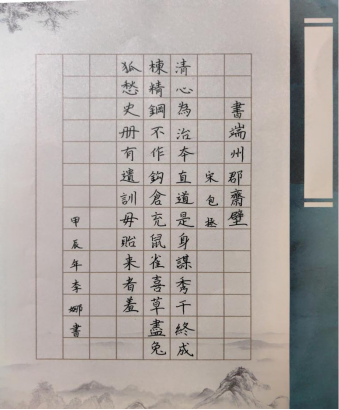 書端州郡齋壁
宋包拯
清心為治本直道是身謀秀干終成
棟精鋼不作鈎倉充鼠雀喜草盡兔
狐愁史册有遺訓毋貽来者羞
甲辰年李娜書